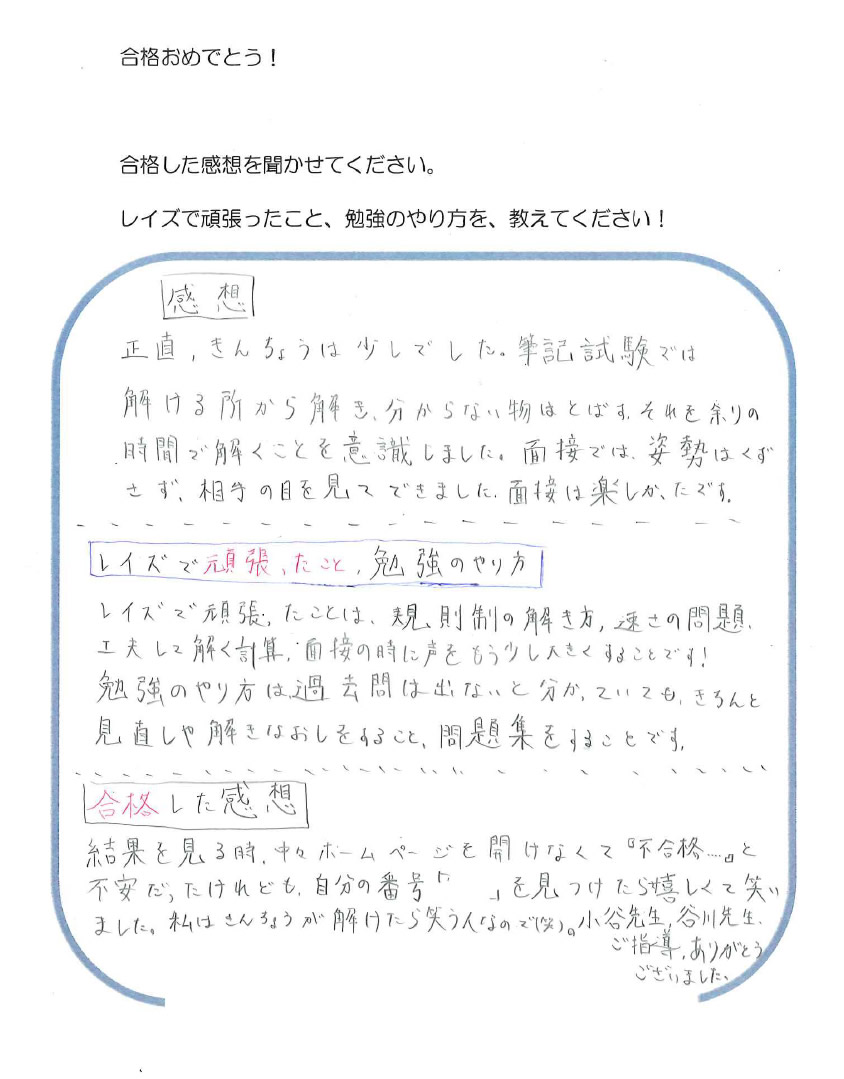 合格おめでとう！
合格した感想を聞かせてください。
レイズで頑張ったこと、勉強のやり方を、教えてください！
感想
正直,きんちょうは少しでした。筆記試験では
解ける所から解き、分からない物はとばす。それを余りの
時間で解くことを意識しました。面接では、姿勢はくず
さず、相手の目を見てできました。面接は楽しかったです。
レイズで頑張ったこと,勉強のやり方
レイズで頑張ったことは、規則制の解き方,速さの問題、
工夫して解く計算,面接の時に声をもう少し大きくすることです！
勉強のやり方は過去問は出ないと分かっていても、きちんと
見直しや解きなおしをすること、問題集をすることです。
合格した感想
結果を見る時、中々ホームページを開けなくて『不合格…。』と
不安だったけれども、自分の番号「 」を見つけたら嬉しくて笑い
ました。私はきんちょうが解けたら笑う人なので(笑)。小谷先生,谷川先生、
ご指導,ありがとう
ございました、